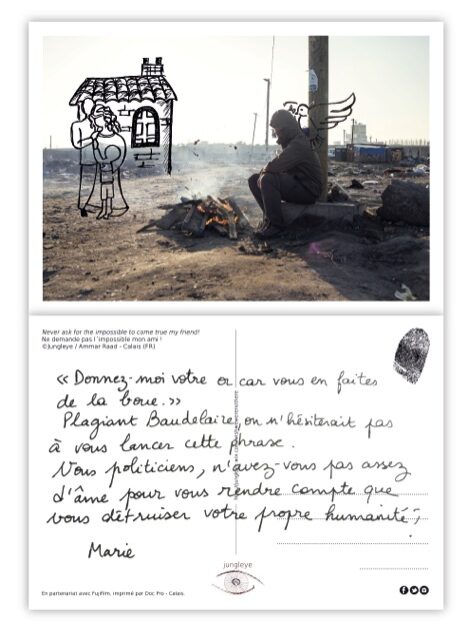 Never ask for the impossible to come true my friend!
Ne demande pas l'impossible mon ami !
©Jungleye / Ammar Raad - Calais (FR)
« Donnez-moi votre or car vous en faites
de la boue. »
Plagiant Baudelaire, on n'hésiterait pas
à vous lancer cette phrase.
Vous politiciens, n'avez-vous pas assez
d'âme pour vous rendre compte que
vous détruisez votre propre humanité ;
Marie
jungleye
En partenariat avec Fujifilm, imprimé par Doc Pro - Calais.